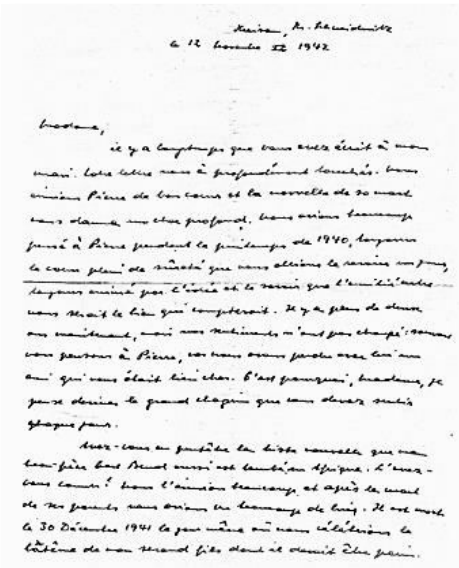 Kreisau, Kr. Schweidnitz
le 12 1942
Madame,
il y a longtemps que vous avez écrit à mon
mari. Votre lettre nous a profondément touchés. Nous
aimions Pierre de bon coeur et la nouvelle de sa mort
nous donna un choc profond. Nous avions beaucoup
pensé à Pierre pendant le printemps de 1940, toujours
le coeur plein de sûreté que nous allions le revoir un jour,
toujours animé par l'idée et le savoir que l'amitié entre
nous serait le lien qui compterait. Il y a plus de deux
ans maintenant, mais nos sentiments n'ont pas changé: souvent
nous pensons à Pierre, nous avons perdu avec lui un
ami qui nous était bien cher. C'est pourquoi, Madame, je
peux deviner le grand chagrin que vous devez sentir
chaque jour.
Avez-vous eu peutêtre la triste nouvelle que mon
beau-frère Carl Bernd aussi est tombé en Afrique. L'avez-
vous connu? Nous l'aimions beaucoup et après la mort
de ses parents nous avions eu beaucoup de lui. Il est mort
le 30 Décembre 1941 le jour même où nous célébrions le
bâtême de mon second fils dont il devait être parin.